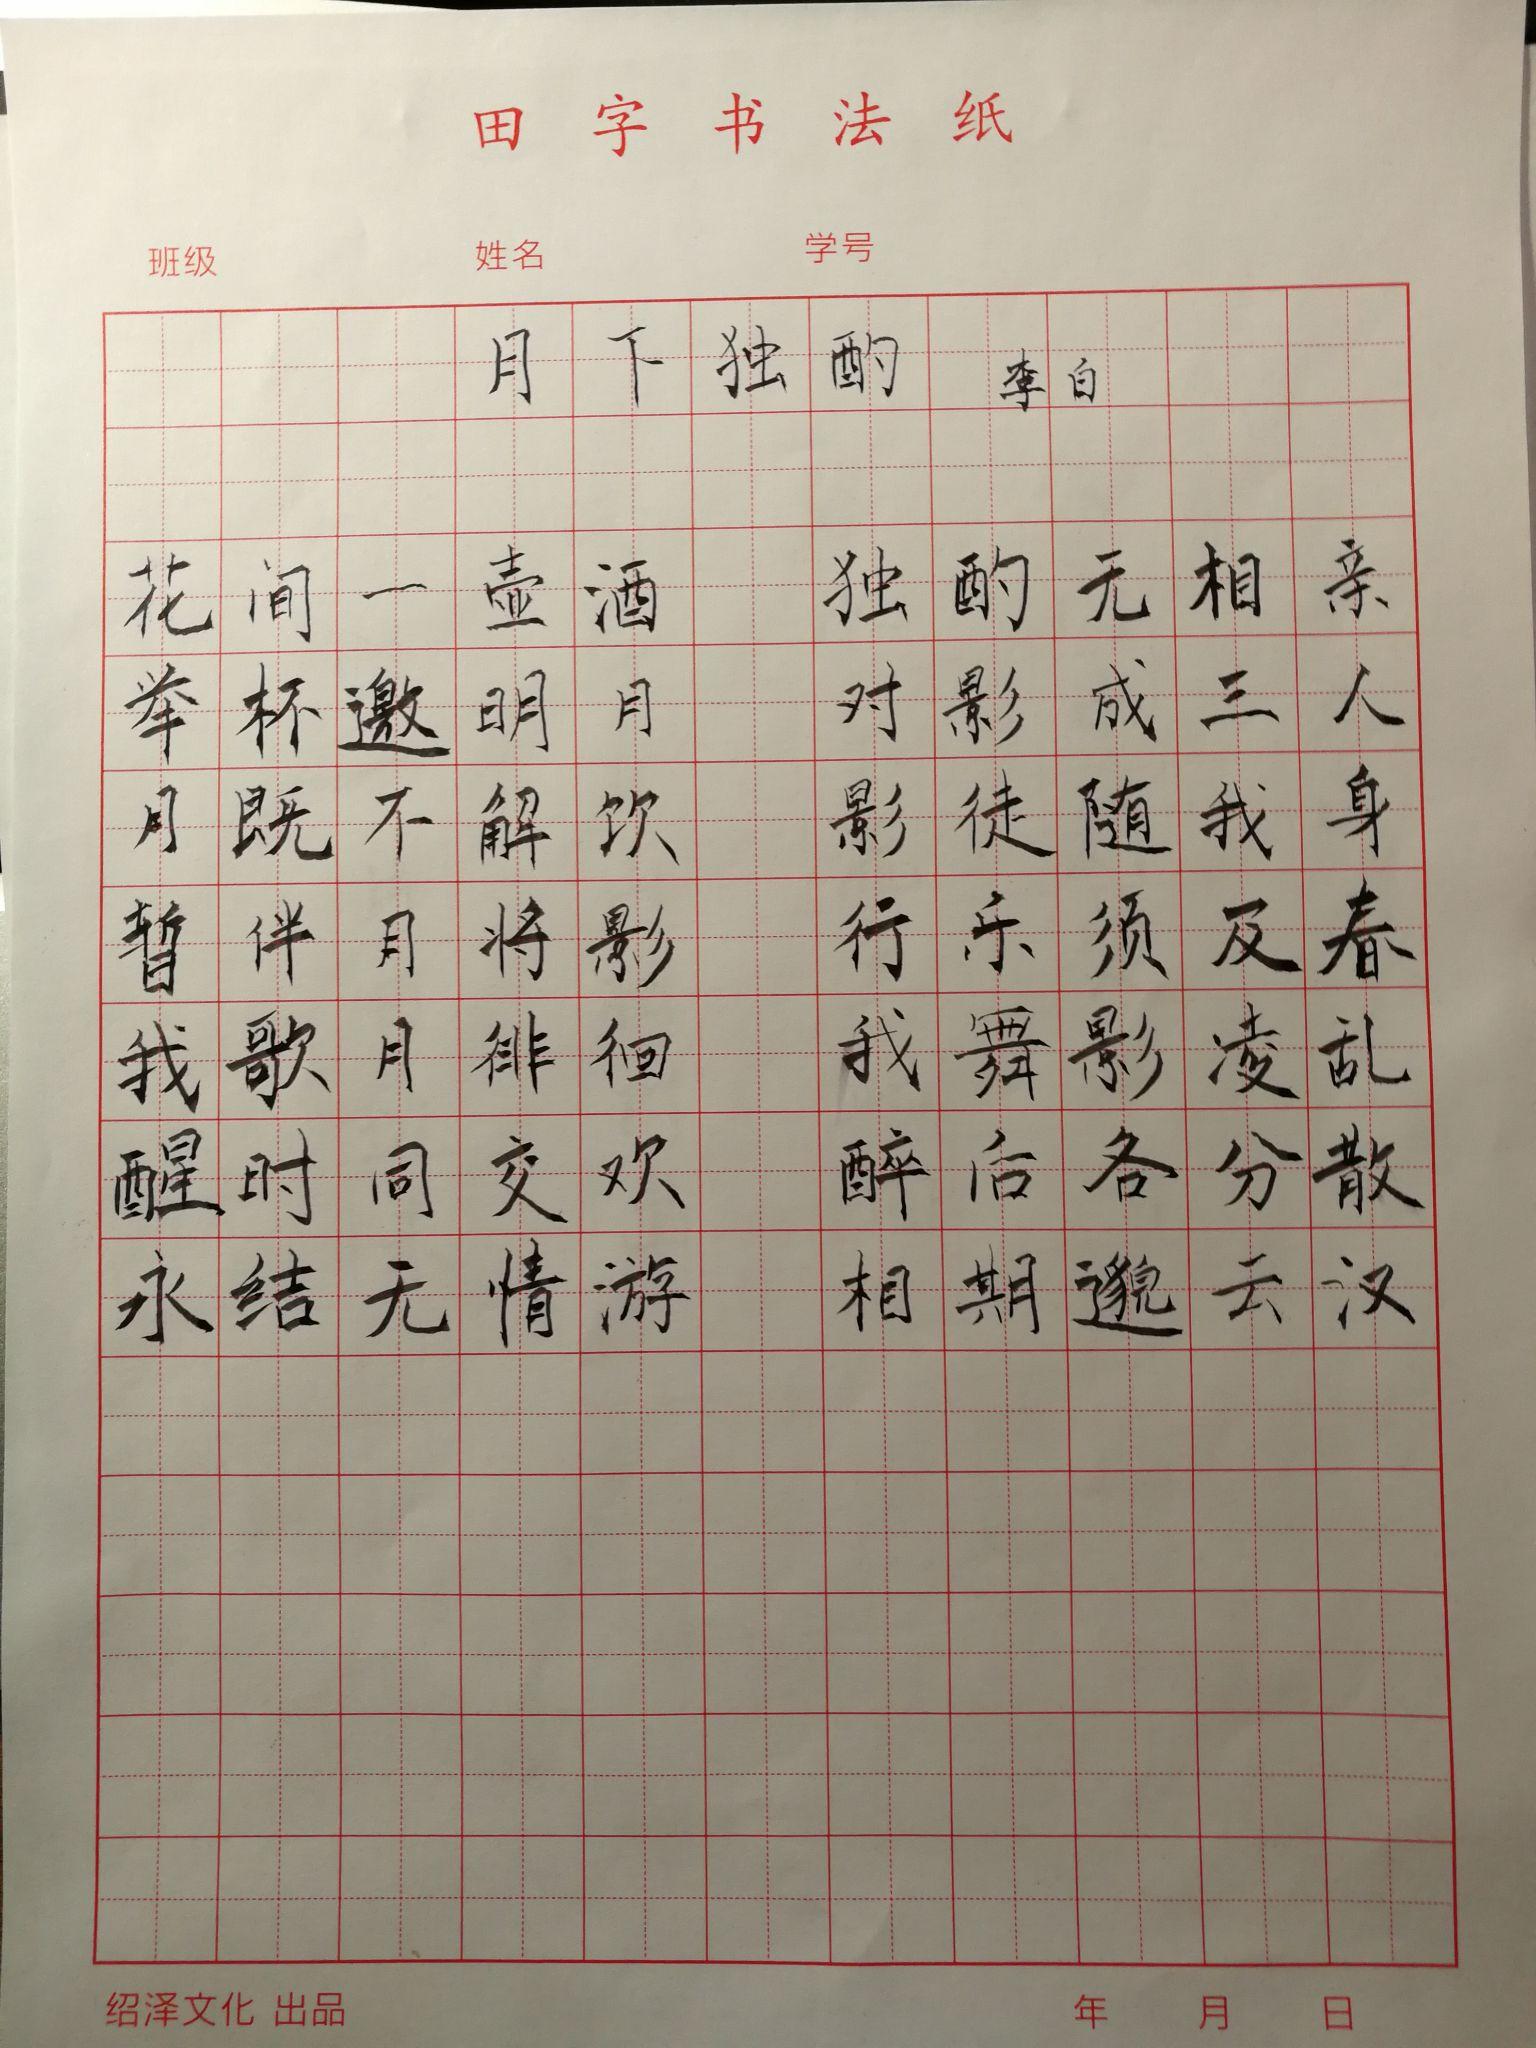 田字书法纸
班级 姓名 学号
月下独酌 李白
花间一壶酒 独酌无相亲
举杯邀明月 对影成三人
月既不解饮 影徒随我身
暂伴月将影 行乐须及春
我歌月徘徊 我舞影凌乱
醒时同交欢 醉后各分散
永结无情游 相期邈云汉
绍泽文化 出品 年 月 日